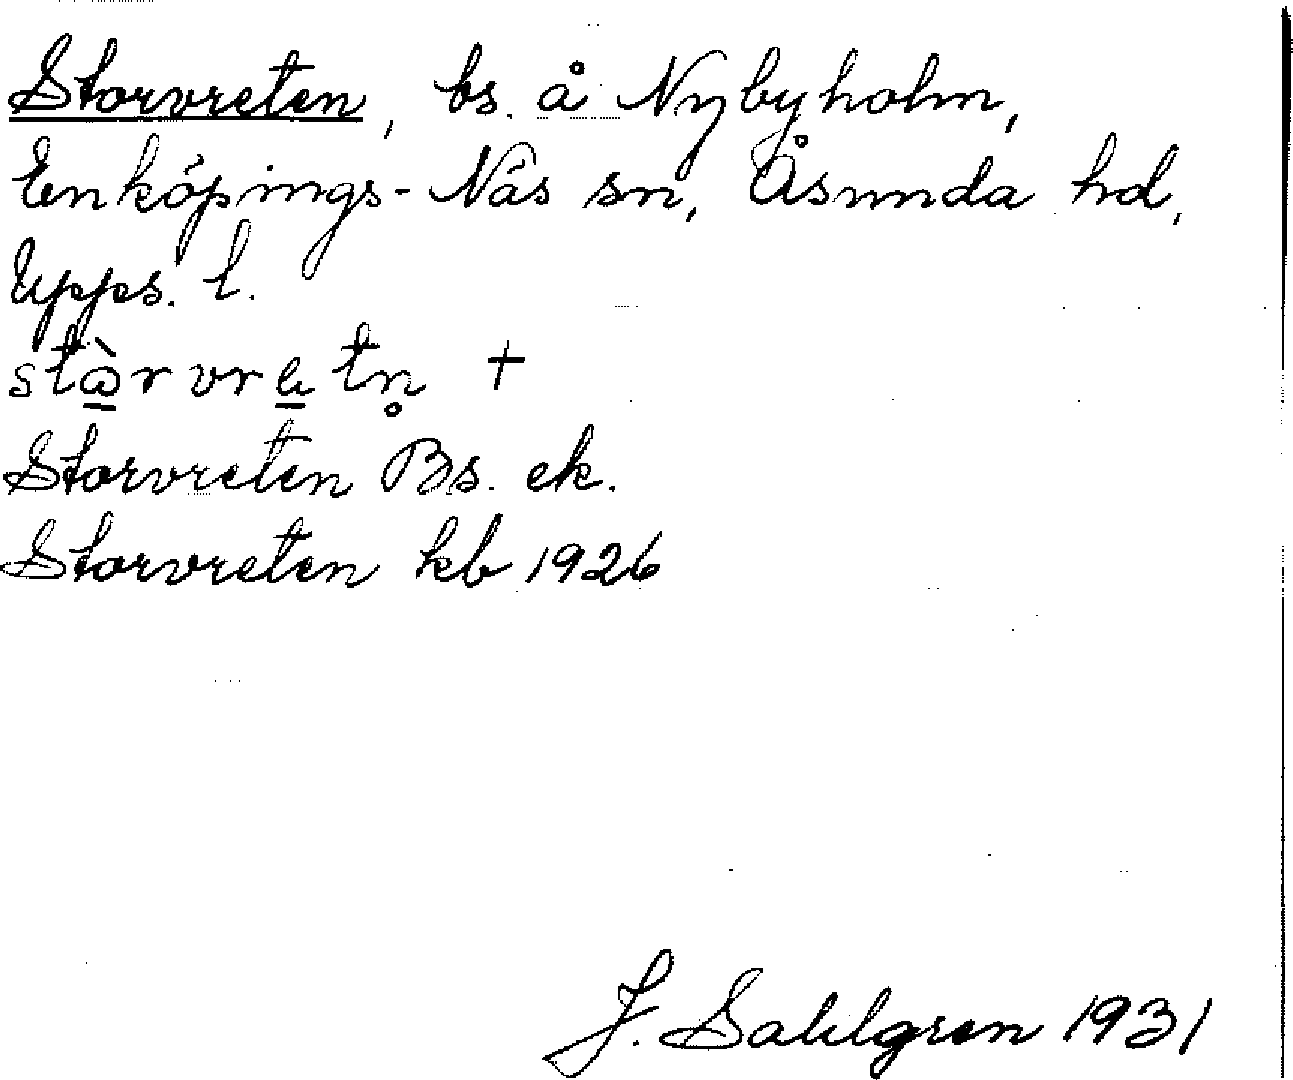 Storvreten, bs. å Nybyholm,
Enköpings-Näs sn, Åsunda hd,
Upps. l.
stɷ̠̀rvre̠tn̥ +
Storvreten Bs. ek.
Storvreten kb 1926
J. Sahlgren 1931